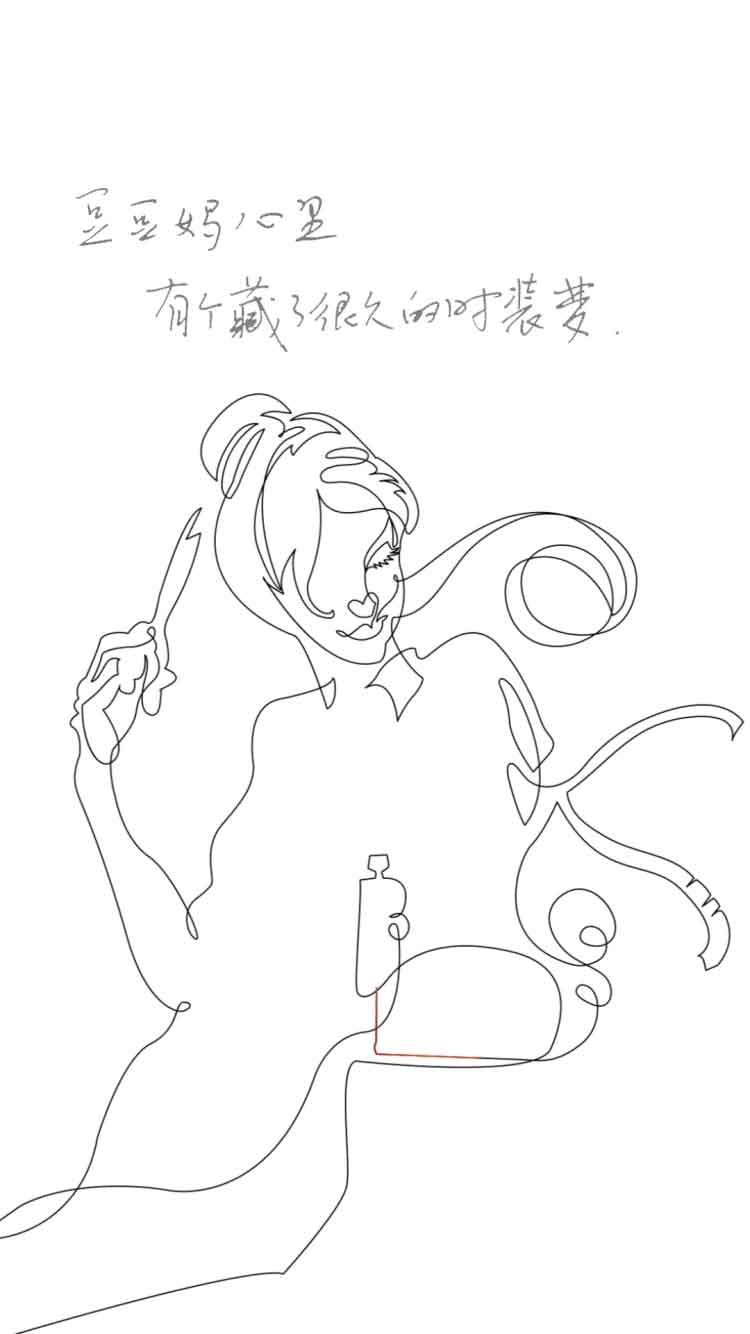 豆豆妈心里
有个藏了很久的时装梦.